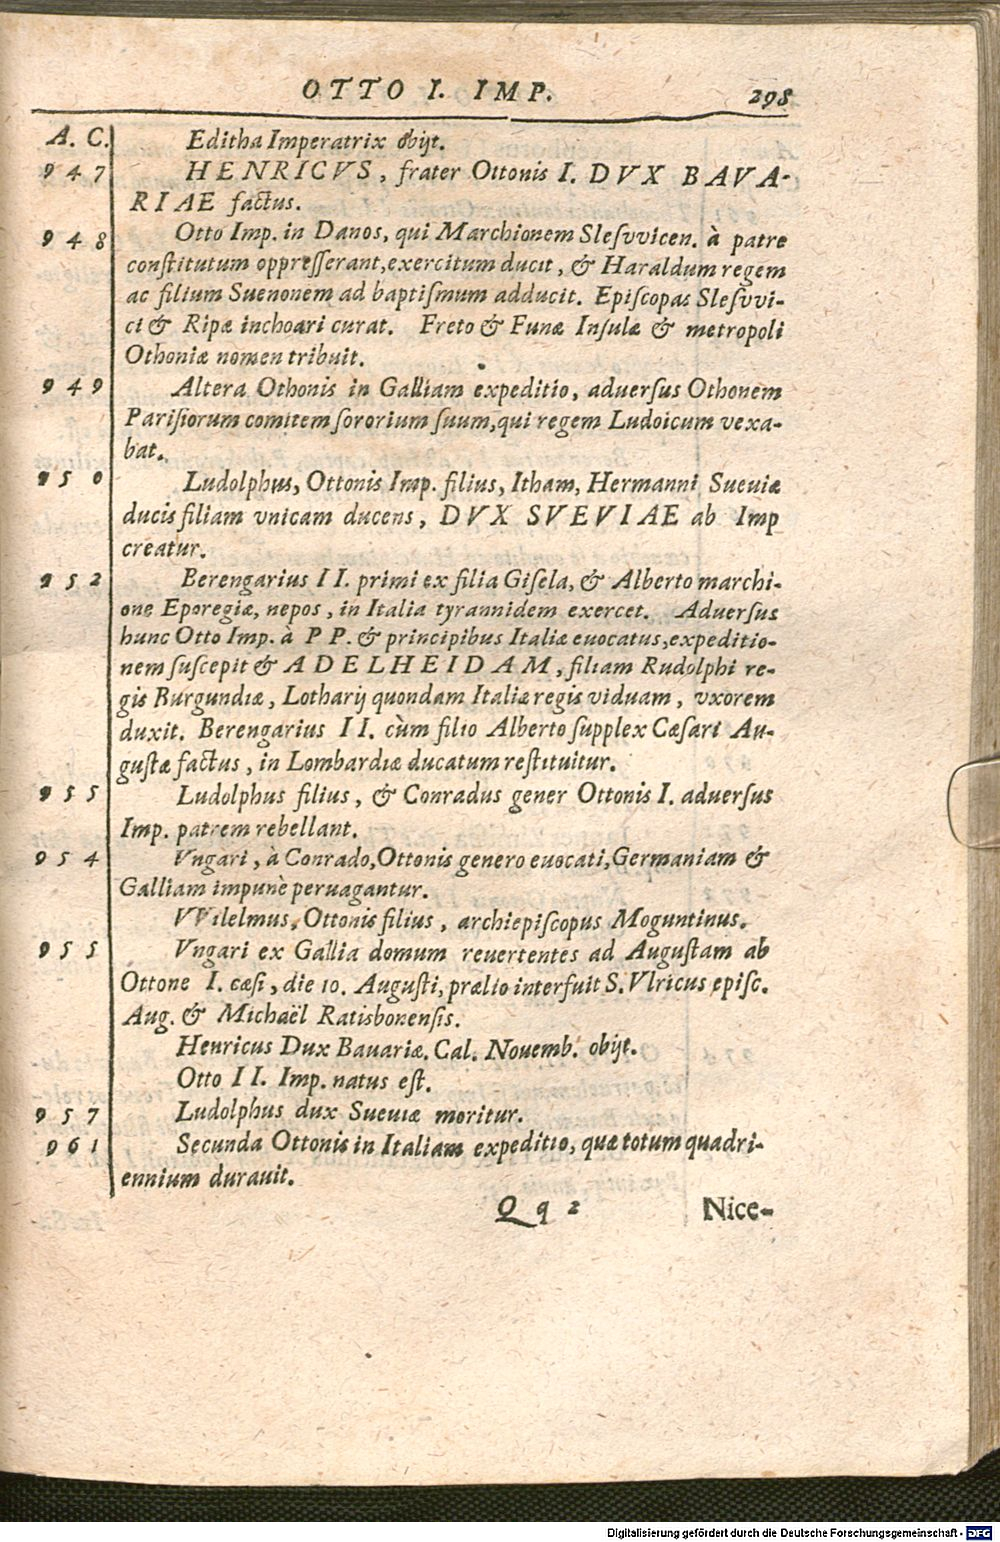 OTTO I. IMP. 298
A. C. Editha Imperatrix obijt.
947 HENRICVS, frater Ottonis I. DVX BAVA-
RIAE factus.
948 Otto Imp. in Danos, qui Marchionem Slesvvicen. à patre
constitutum oppresserant, exercitum ducit, & Haraldum regem
ac filium Suenonem ad baptismum adducit. Episcopas Slesvvi-
ci & Ripæ inchoari curat. Freto & Funæ Insulæ & metropoli
Othoniæ nomen tribuit.
949 Altera Othonis in Galliam expeditio, adversus Othonem
Parisiorum comitem sororium suum, qui regem Ludoicum vexa-
bat.
950 Ludolphus, Ottonis Imp. filius, Itham, Hermanni Sueuiæ
ducis filiam vnicam ducens, DVX SVEVIAE ab Imp
creatur.
952 Berengarius II. primi ex filia Gisela, & Alberto marchi-
one Eporegiæ, nepos, in Italia tyrannidem exercet. Aduersus
hunc Otto Imp. à PP. & principibus Italiæ euocatus, expeditio-
nem suscepit & ADELHEIDAM, filiam Rudolphi re-
gis Burgundiæ, Lotharij quondam Italiæ regis viduam, vxorem
duxit. Berengarius II. cùm filio Alberto supplex Cæsari Au-
gustæ factus, in Lombardiæ ducatum restituitur.
955 Ludolphus filius, & Conradus gener Ottonis I. aduersus
Imp. patrem rebellant.
954 Vngari, à Conrado, Ottonis genero euocati, Germaniam &
Galliam impunè peruagantur.
VVilelmus, Ottonis filius, archiepiscopus Moguntinus.
955 Vngari ex Gallia domum reuertentes ad Augustam ab
Ottone I. cæsi, die 10. Augusti, prælio interfuit S. Vlricus episc.
Aug. & Michaël Ratisbonensis.
Henricus Dux Bauariæ. Cal. Nouemb. obijt.
Otto II. Imp. natus est.
957 Ludolphus dux Sueuiæ moritur.
961 Secunda Ottonis in Italiam expeditio, quæ totum quadri-
ennium durauit.
Qq 2 Nice-
Digitalisierung gefördert durch die Deutsche Forschungsgemeinschaft - DFG